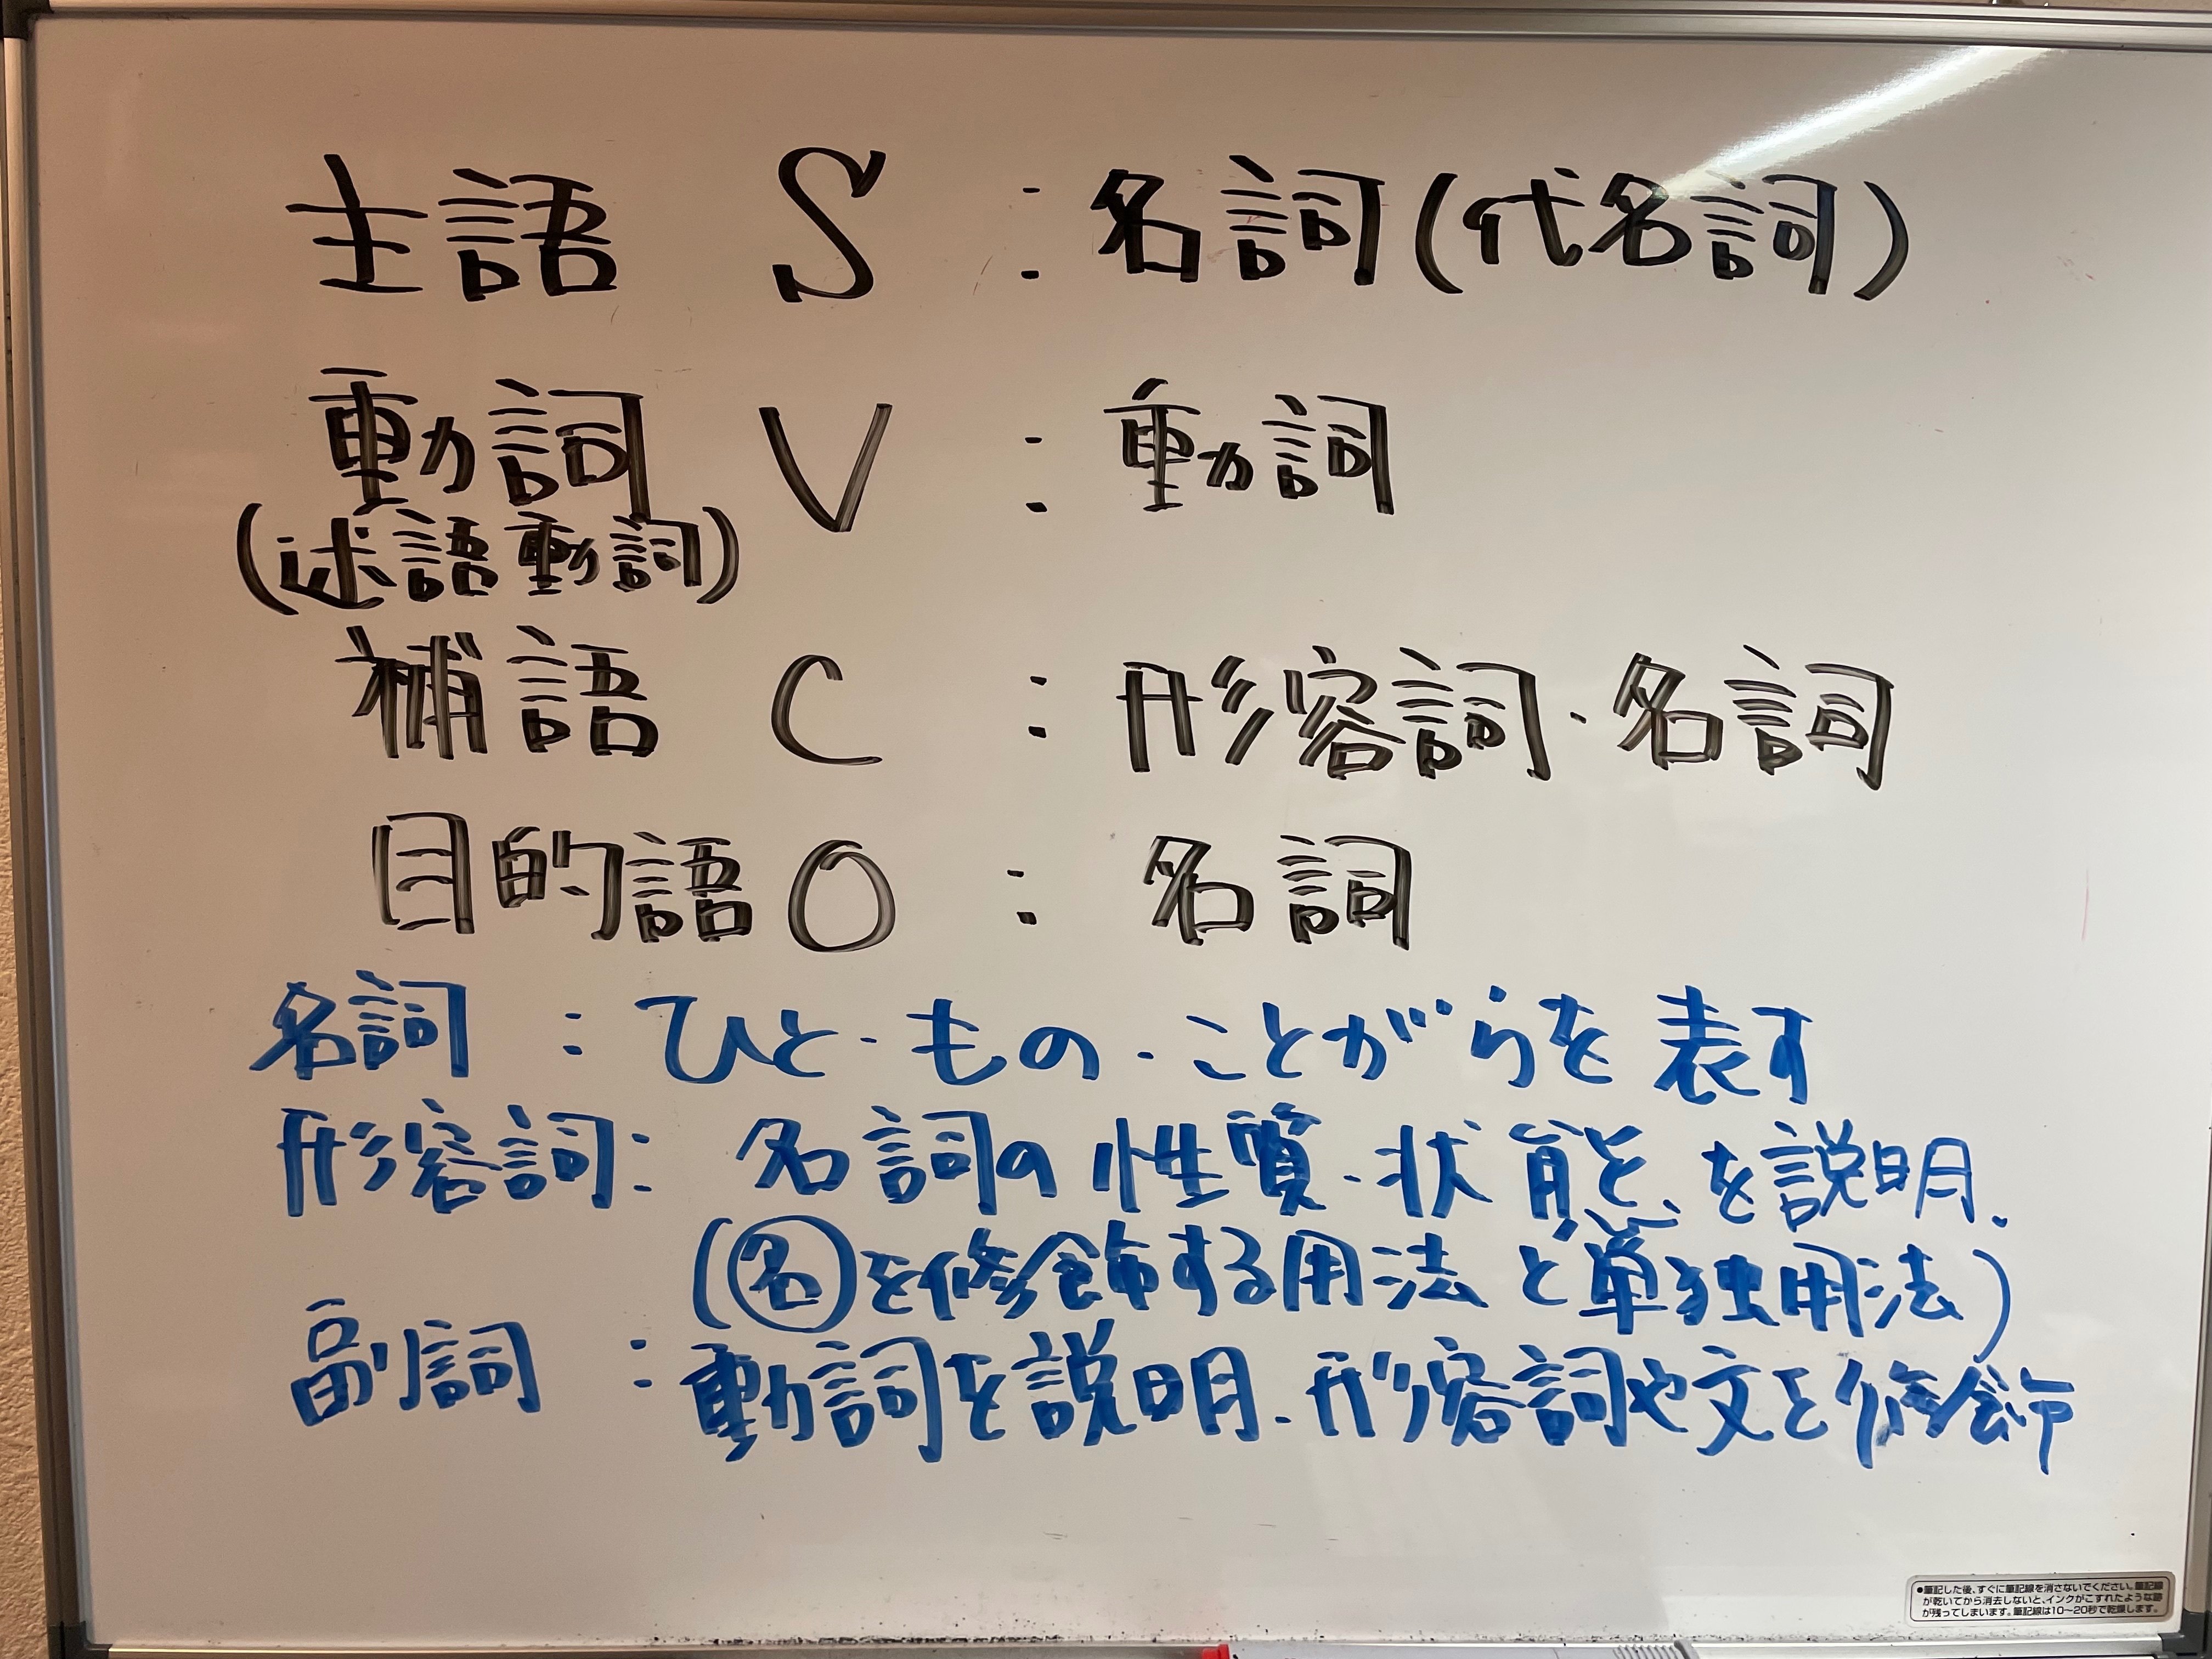 主語 S : 名詞(代名詞)
動詞 V : 動詞
(述語動詞)
補語 C : 形容詞・名詞
目的語 O : 名詞
名詞 : ひと・もの・ことがらを表す
形容詞: 名詞の性質・状態を説明.
(名を修飾する用法と単独用法)
副詞 : 動詞を説明.形容詞や文を修飾
●筆記した後、すぐに筆記線を消さないでください。筆記線
が乾いてから消去しないと、インクがこすれたような跡
が残ってしまいます。筆記線は10〜20秒で乾燥します。